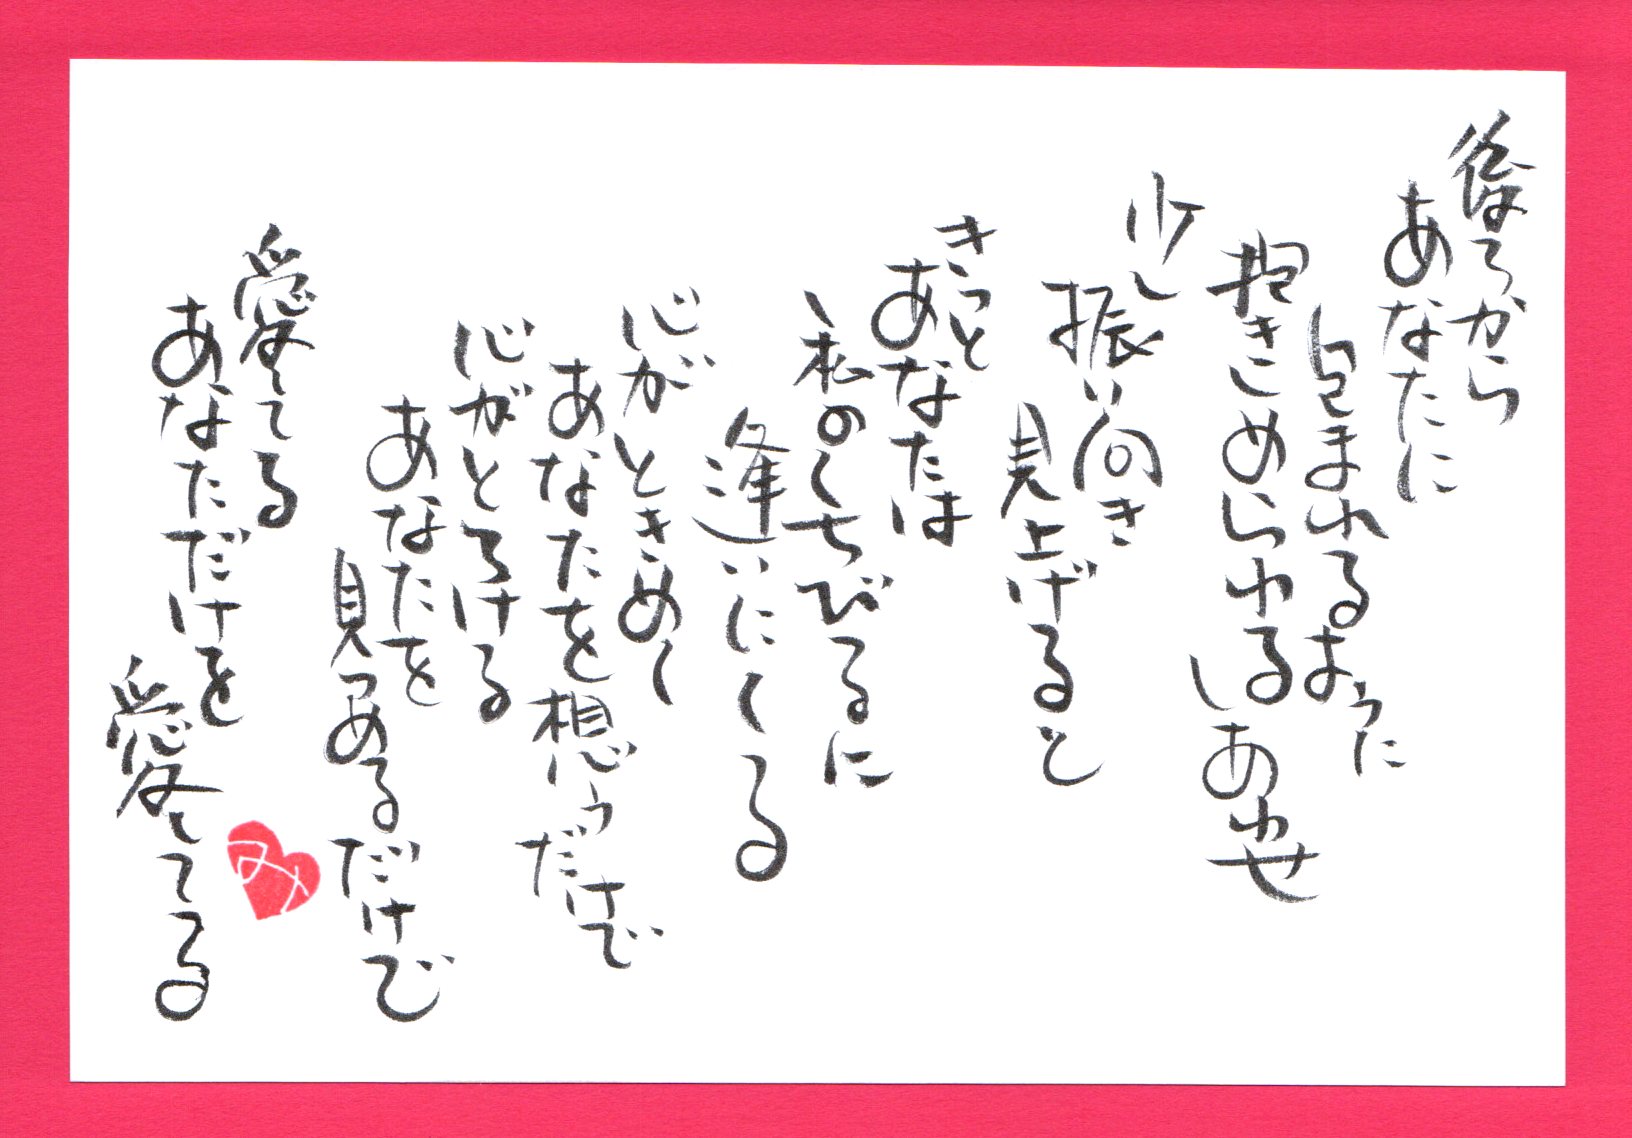 後ろから
あなたに
包まれるように
抱きしめられるしあわせ
少し
振り向き
見上げると
きっと
あなたは
私のくちびるに
逢いにくる
心がときめく
あなたを想うだけで
心がとろける
あなたを
見つめるだけで
愛してる
あなただけを
愛してる